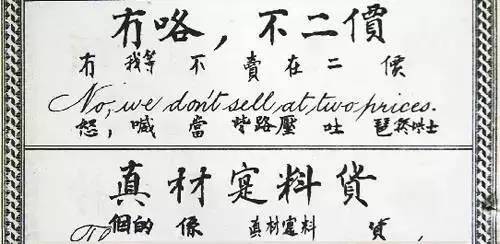 冇咯，不二價
冇 我等 不 賣 在 二 價
No, we don't sell at two prices.
恕，喊 當 些路壓 吐 琶
真材寔料貨
個的 係 真材寔料 貨，